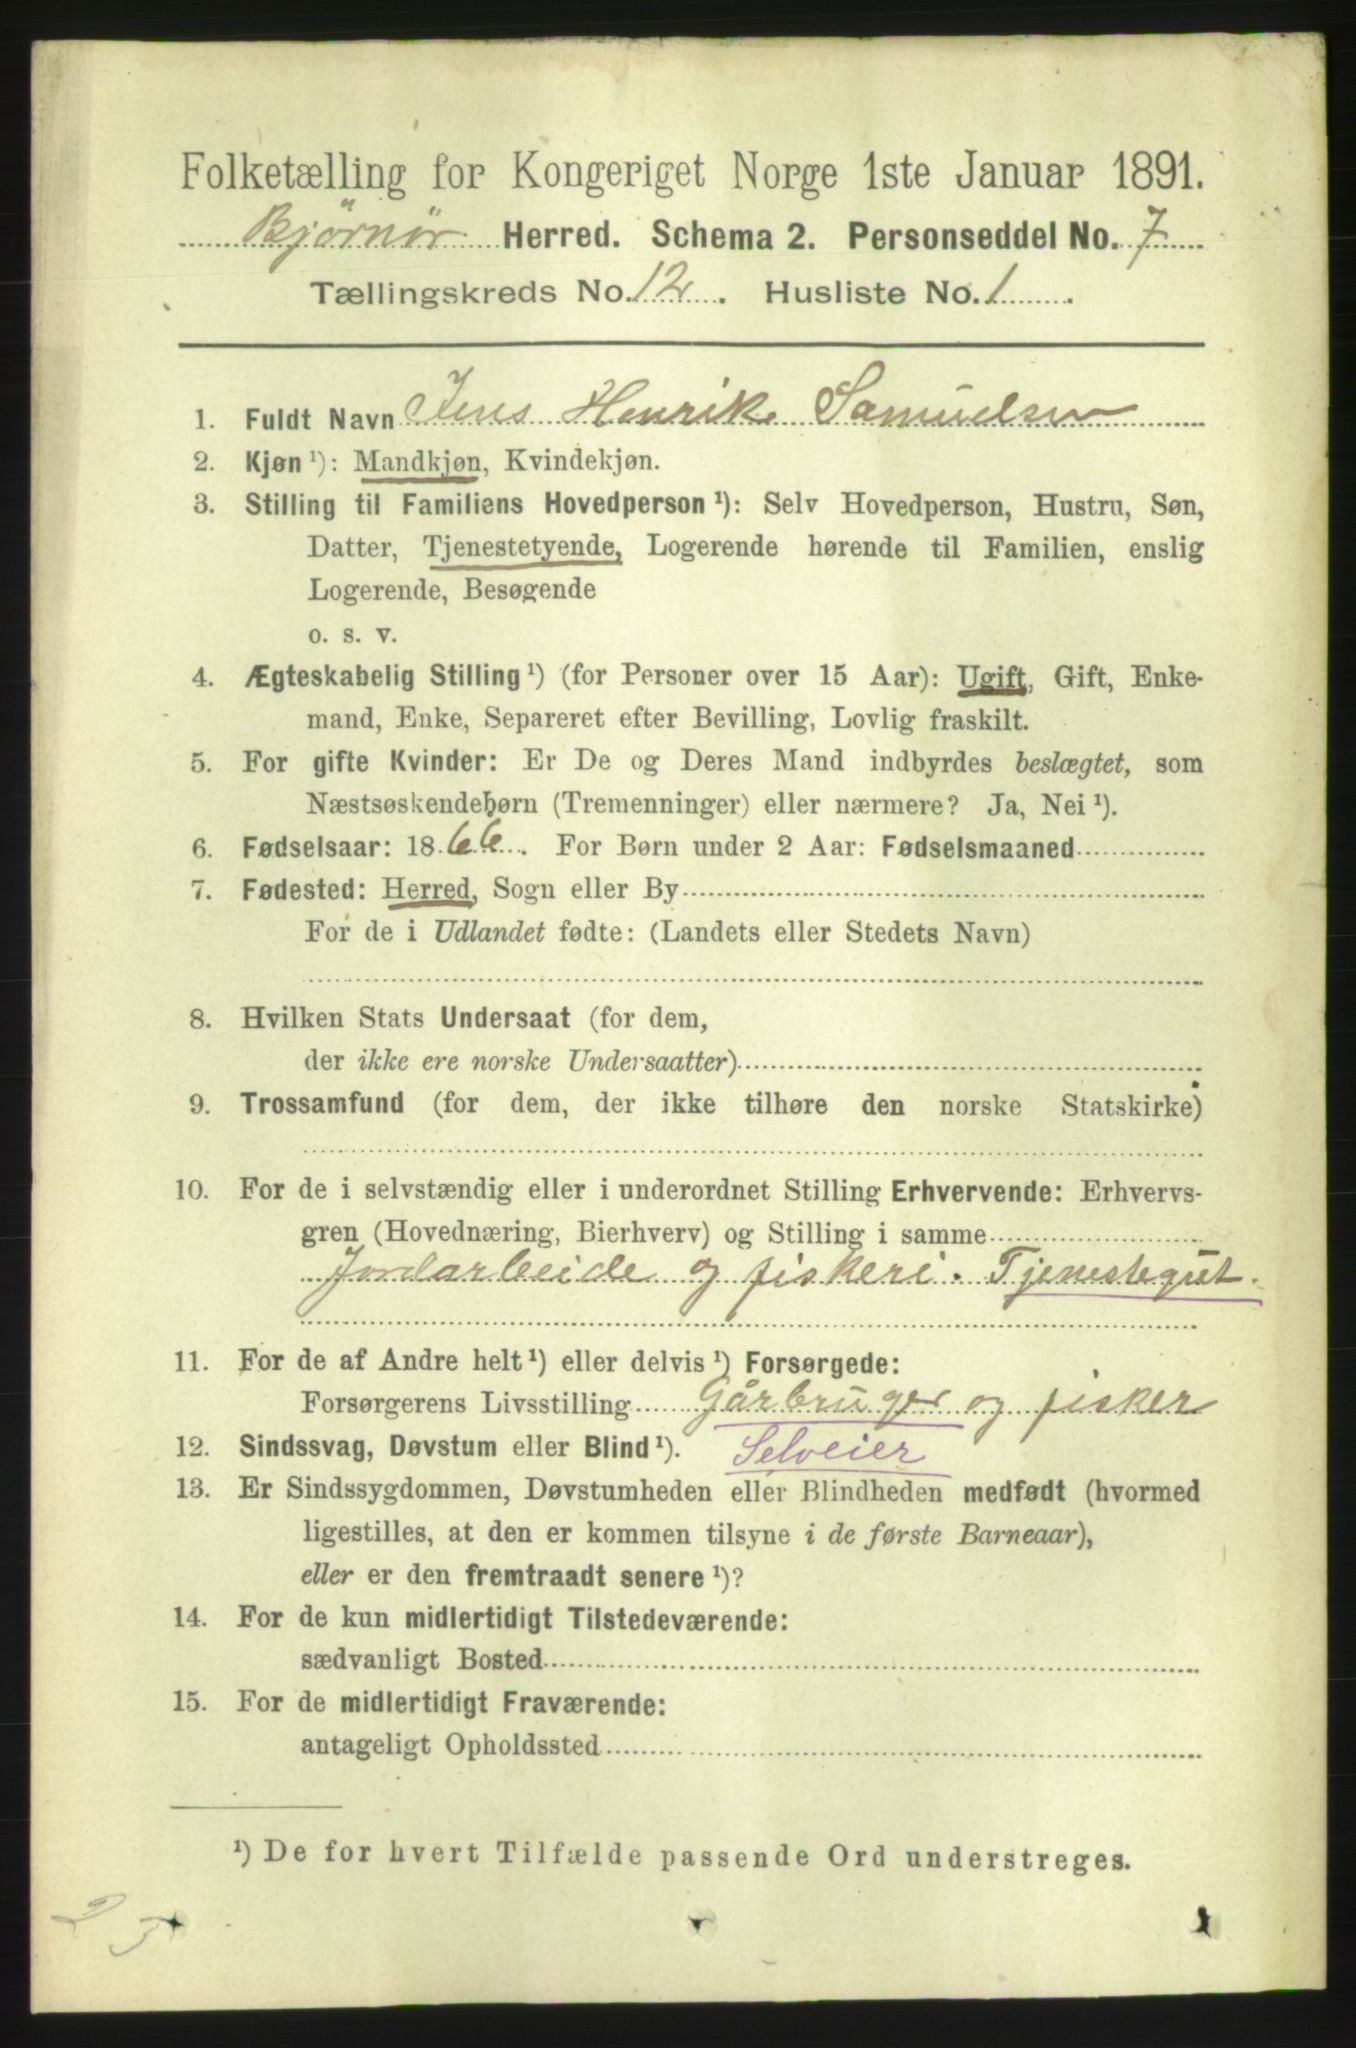 Folketælling for Kongeriget Norge 1ste Januar 1891.
Bjørnør Herred. Schema 2. Personseddel No. 7
Tællingskreds No. 12. Husliste No. 1.
1. Fuldt Navn Jens Henrik Samuelsen
2. Kjøn ¹): Mandkjøn, Kvindekjøn.
3. Stilling til Familiens Hovedperson ¹): Selv Hovedperson, Hustru, Søn,
Datter, Tjenestetyende, Logerende hørende til Familien, enslig
Logerende, Besøgende
o. s. v.
4. Ægteskabelig Stilling ¹) (for Personer over 15 Aar): Ugift, Gift, Enke-
mand, Enke, Separeret efter Bevilling, Lovlig fraskilt.
5. For gifte Kvinder: Er De og Deres Mand indbyrdes beslægtet, som
Næstsøskendebørn (Tremenninger) eller nærmere? Ja, Nei ¹).
6. Fødselsaar: 1866. For Børn under 2 Aar: Fødselsmaaned
7. Fødested: Herred, Sogn eller By
For de i Udlandet fødte: (Landets eller Stedets Navn)
8. Hvilken Stats Undersaat (for dem,
der ikke ere norske Undersaatter)
9. Trossamfund (for dem, der ikke tilhøre den norske Statskirke)
10. For de i selvstændig eller i underordnet Stilling Erhvervende: Erhvervs-
gren (Hovednæring, Bierhverv) og Stilling i samme
Jordarbeide og fiskeri. Tjenestegut.
11. For de af Andre helt ¹) eller delvis ¹) Forsørgede:
Forsørgerens Livsstilling Gårbruger og fisker
12. Sindssvag, Døvstum eller Blind ¹). Selveier
13. Er Sindssygdommen, Døvstumheden eller Blindheden medfødt (hvormed
ligestilles, at den er kommen tilsyne i de første Barneaar),
eller er den fremtraadt senere ¹)?
14. For de kun midlertidigt Tilstedeværende:
sædvanligt Bosted
15. For de midlertidigt Fraværende:
antageligt Opholdssted
¹) De for hvert Tilfælde passende Ord understreges.